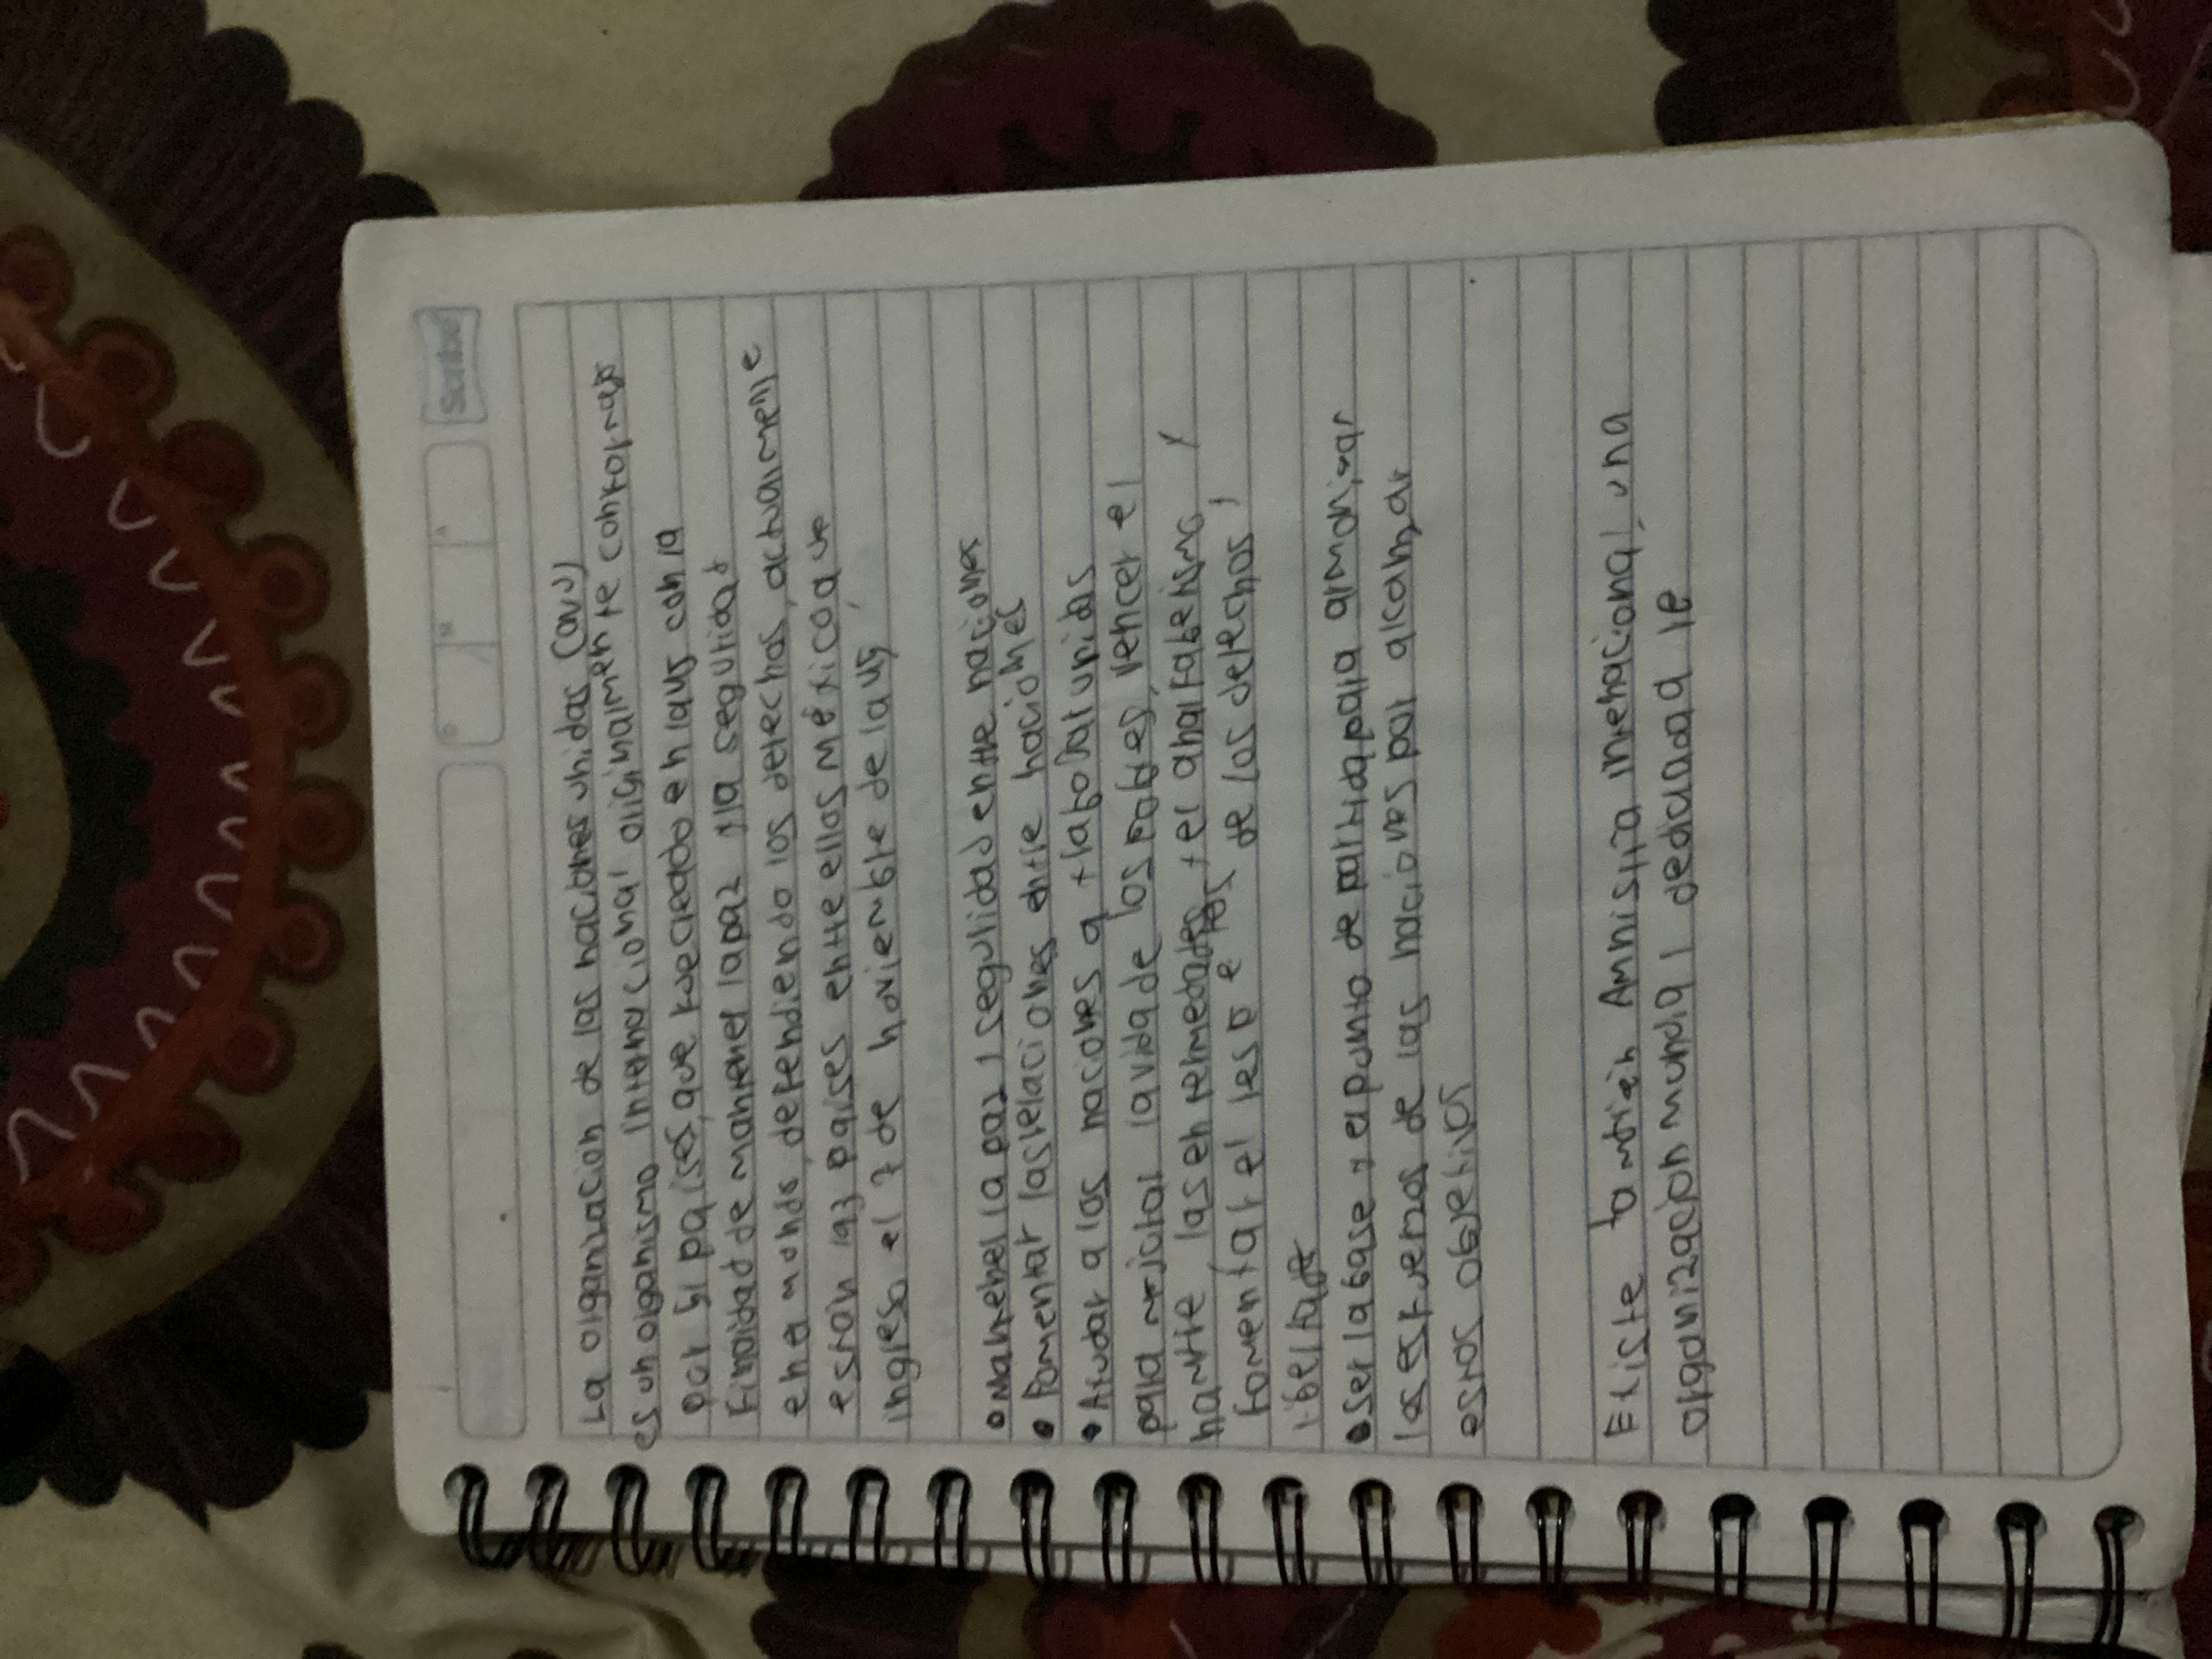 Scribe
D M A
La organizacion de las naciones unidas (onu)
es un organismo internacional originalmente conformado
por 51 paises, que fue creado en 1945 con la
finalidad de mantener la paz y la seguridad
en el mundo, defendiendo los derechos, actualmente
estan 193 paises entre ellos México que
ingreso el 7 de noviembre de 1945
• Mantener la paz y seguridad entre naciones
• Fomentar las relaciones entre naciones
• Ayudar a las naciones a trabajar unidas
para mejorar la vida de los pobres, vencer el
hambre las enfermedades y el analfabetismo y
fomentar el respeto de los derechos y
libertades
• Ser la base y el punto de partida para armonizar
los esfuerzos de las naciones por alcanzar
esos objetivos
Existe también Amnistia internacional, una
organización mundial dedicada